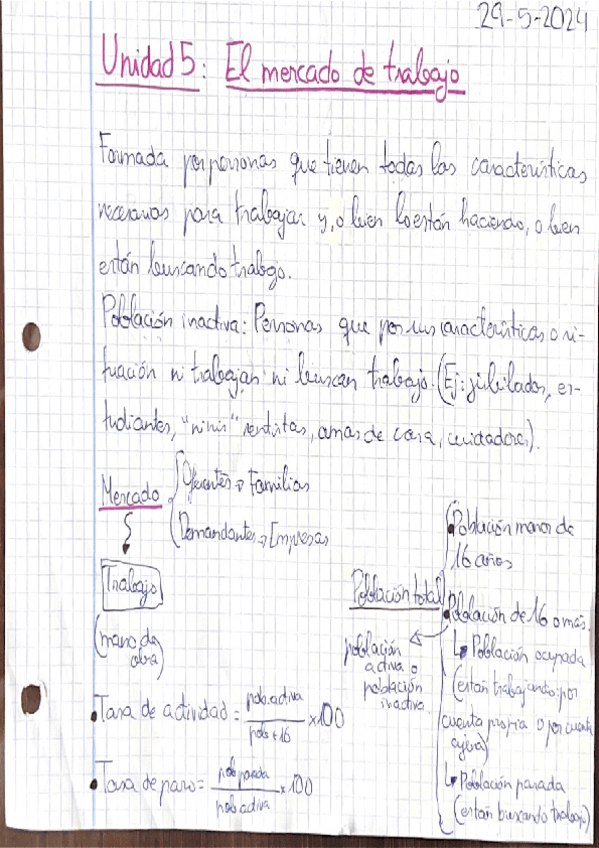 29-5-2024
Unidad 5: El mercado de trabajo
Formada por personas que tienen todas las características
necesarias para trabajar y, o bien lo están haciendo, o bien
están buscando trabajo.
Población inactiva: Personas que por sus características o si-
tuación ni trabajan ni buscan trabajo. (Ej: jubilados, es-
tudiantes, "ninis" rentistas, amas de casa, cuidadores).
Mercado
Oferentes → Familias
Demandantes → Empresas
Trabajo
(mano de
obra)
Población total
Población menor de
16 años
Población de 16 o más.
población
activa o
población
inactiva.
↳ Población ocupada
(están trabajando por
cuenta propia o por cuenta
ajena)
↳ Población parada
(están buscando trabajo)
• Tasa de actividad = pob. activa / pob + 16 × 100
• Tasa de paro = pob parada / pob activa × 100